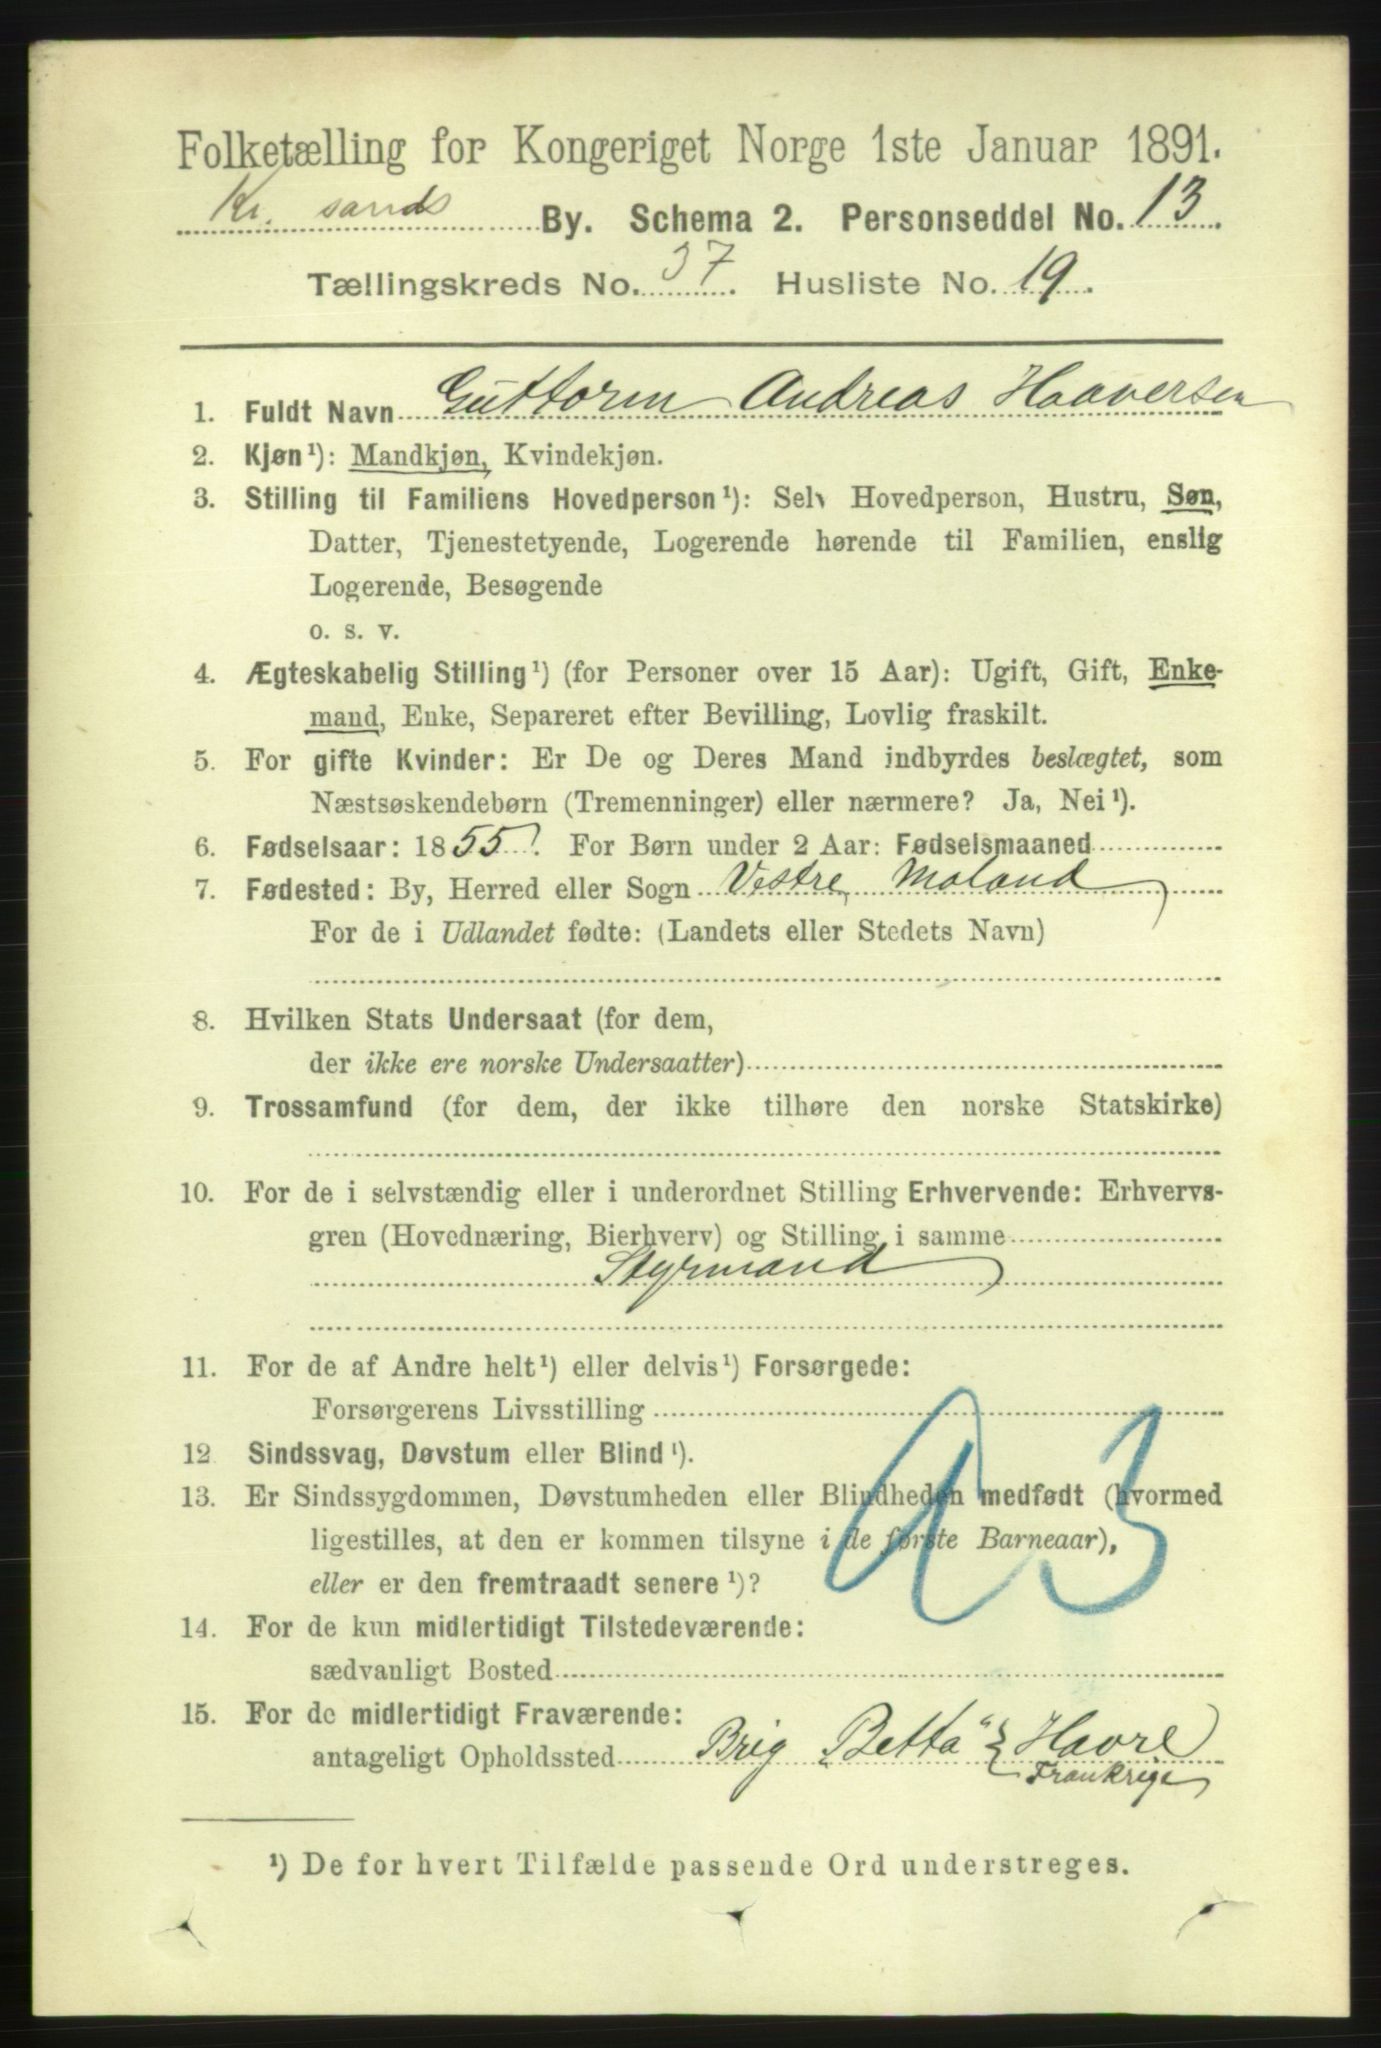 Folketælling for Kongeriget Norge 1ste Januar 1891.
Kr. sands By. Schema 2. Personseddel No. 13
Tællingskreds No. 37. Husliste No. 19.
1. Fuldt Navn Guttorm Andreas Haaversen
2. Kjøn¹): Mandkjøn, Kvindekjøn.
3. Stilling til Familiens Hovedperson¹): Selv Hovedperson, Hustru, Søn,
Datter, Tjenestetyende, Logerende hørende til Familien, enslig
Logerende, Besøgende
o. s. v.
4. Ægteskabelig Stilling¹) (for Personer over 15 Aar): Ugift, Gift, Enke-
mand, Enke, Separeret efter Bevilling, Lovlig fraskilt.
5. For gifte Kvinder: Er De og Deres Mand indbyrdes beslægtet, som
Næstsøskendebørn (Tremenninger) eller nærmere? Ja, Nei¹).
6. Fødselsaar: 1855. For Børn under 2 Aar: Fødselsmaaned
7. Fødested: By, Herred eller Sogn Vestre Moland
For de i Udlandet fødte: (Landets eller Stedets Navn)
8. Hvilken Stats Undersaat (for dem,
der ikke ere norske Undersaatter)
9. Trossamfund (for dem, der ikke tilhøre den norske Statskirke)
10. For de i selvstændig eller i underordnet Stilling Erhvervende: Erhvervs-
gren (Hovednæring, Bierhverv) og Stilling i samme
Styrmand
11. For de af Andre helt¹) eller delvis¹) Forsørgede:
Forsørgerens Livsstilling
12 Sindssvag, Døvstum eller Blind¹).
13. Er Sindssygdommen, Døvstumheden eller Blindheden medfødt (hvormed
ligestilles, at den er kommen tilsyne i de første Barneaar),
eller er den fremtraadt senere¹)?
14. For de kun midlertidigt Tilstedeværende:
sædvanligt Bosted
15. For de midlertidigt Fraværende:
antageligt Opholdssted Brig „Betta“ Havre
Frankrige
¹) De for hvert Tilfælde passende Ord understreges.